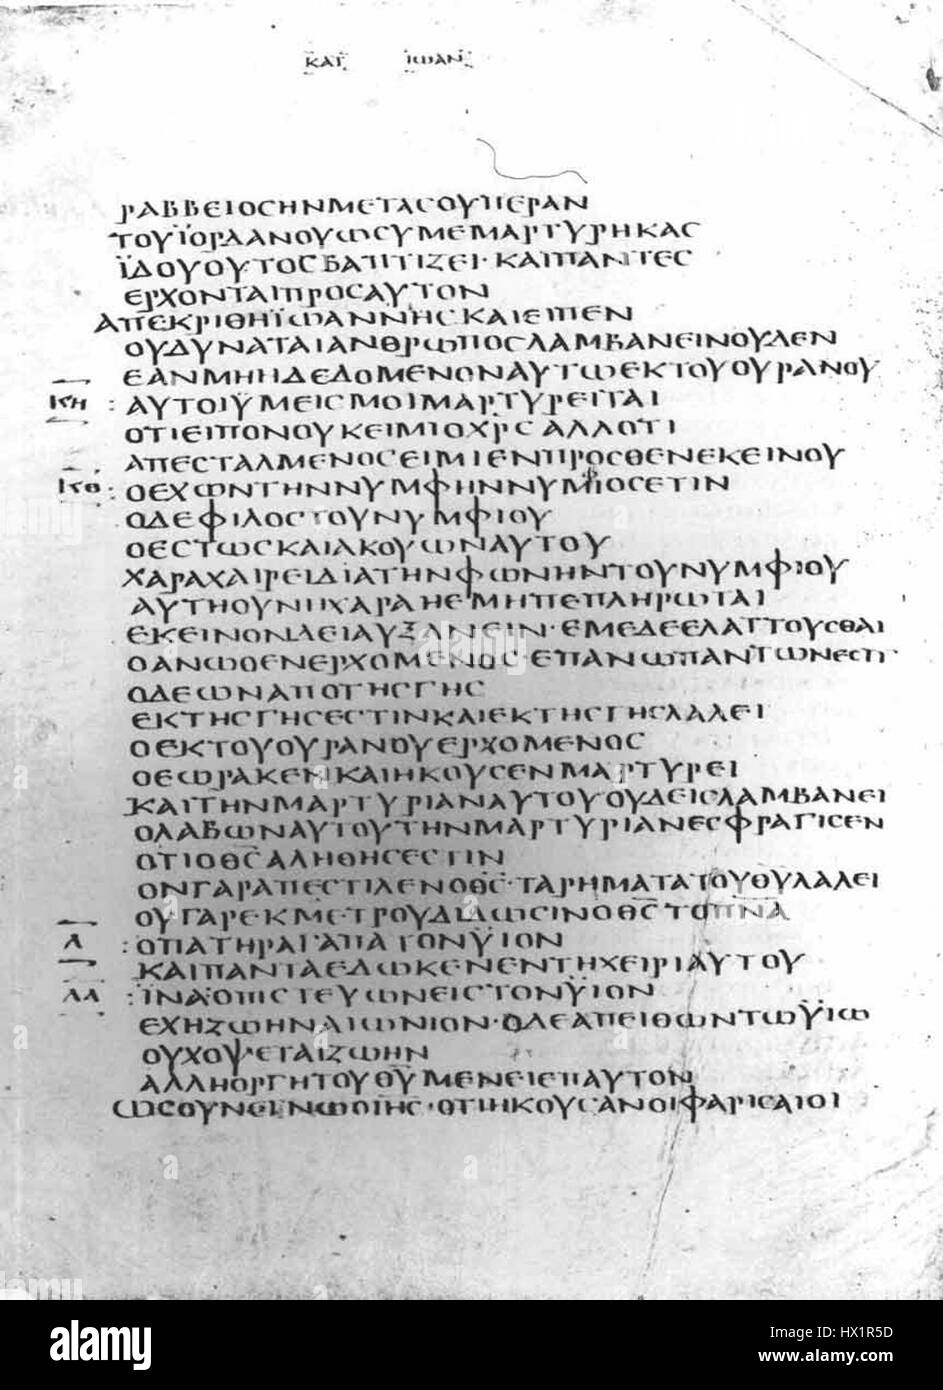 ΚΑΤ ΙΩΑΝ
ΡΑΒΒΕΙΟΣΗΝΜΕΤΑΣΟΥΠΕΡΑΝ
ΤΟΥΪΟΡΔΑΝΟΥΩΣΥΜΕΜΑΡΤΥΡΗΚΑΣ
ΪΔΟΥΟΥΤΟΣΒΑΠΤΙΖΕΙ·ΚΑΙΠΑΝΤΕΣ
ΕΡΧΟΝΤΑΙΠΡΟΣΑΥΤΟΝ
ΑΠΕΚΡΙΘΗΪΩΑΝΝΗΣΚΑΙΕΙΠΕΝ
ΟΥΔΥΝΑΤΑΙΑΝΘΡΩΠΟΣΛΑΜΒΑΝΕΙΝΟΥΔΕΝ
ΕΑΝΜΗΗΔΕΔΟΜΕΝΟΝΑΥΤΩΕΚΤΟΥΟΥΡΑΝΟΥ
ΚΗ : ΑΥΤΟΙΫΜΕΙΣΜΟΙΜΑΡΤΥΡΕΙΤΑΙ
ΟΤΙΕΙΠΟΝΟΥΚΕΙΜΙΟΧΡΣΑΛΛΟΤΙ
ΑΠΕΣΤΑΛΜΕΝΟΣΕΙΜΙΕΝΠΡΟΣΘΕΝΕΚΕΙΝΟΥ
ΚΘ : ΟΕΧΩΝΤΗΝΝΥΜΦΗΝΝΥΜΙΟΣΕΤΙΝ
ΟΔΕΦΙΛΟΣΤΟΥΝΥΜΦΙΟΥ
ΟΕΣΤΩΣΚΑΙΑΚΟΥΩΝΑΥΤΟΥ
ΧΑΡΑΧΑΙΡΕΙΔΙΑΤΗΝΦΩΝΗΝΤΟΥΝΥΜΦΙΟΥ
ΑΥΤΗΟΥΝΗΧΑΡΑΗΕΜΗΠΕΠΛΗΡΩΤΑΙ
ΕΚΕΙΝΟΝΔΕΙΑΥΞΑΝΕΙΝ·ΕΜΕΔΕΕΛΑΤΤΟΥΣΘΑΙ
ΟΑΝΩΘΕΝΕΡΧΟΜΕΝΟΣΕΠΑΝΩΠΑΝΤΩΝΕΣΤΙ
ΟΔΕΩΝΑΠΟΤΗΣΓΗΣ
ΕΚΤΗΣΓΗΣΕΣΤΙΝΚΑΙΕΚΤΗΣΓΗΣΛΑΛΕΙ
ΟΕΚΤΟΥΟΥΡΑΝΟΥΕΡΧΟΜΕΝΟΣ
ΟΕΩΡΑΚΕΝΚΑΙΗΚΟΥΣΕΝΜΑΡΤΥΡΕΙ
ΚΑΙΤΗΝΜΑΡΤΥΡΙΑΝΑΥΤΟΥΟΥΔΕΙΣΛΑΜΒΑΝΕΙ
ΟΛΑΒΩΝΑΥΤΟΥΤΗΝΜΑΡΤΥΡΙΑΝΕΣΦΡΑΓΙΣΕΝ
ΟΤΙΟΘΣΑΛΗΘΗΣΕΣΤΙΝ
ΟΝΓΑΡΑΠΕΣΤΙΛΕΝΟΘΣ·ΤΑΡΗΜΑΤΑΤΟΥΘΥΛΑΛΕΙ
ΟΥΓΑΡΕΚΜΕΤΡΟΥΔΙΔΩΣΙΝΟΘΣΤΟΠΝΑ
Λ : ΟΠΑΤΗΡΑΓΑΠΑΤΟΝΫΙΟΝ
ΚΑΙΠΑΝΤΑΕΔΩΚΕΝΕΝΤΗΧΕΙΡΙΑΥΤΟΥ
ΛΑ : ΪΝΑΟΠΙΣΤΕΥΩΝΕΙΣΤΟΝΫΙΟΝ
ΕΧΗΖΩΗΝΑΙΩΝΙΟΝ·ΟΔΕΑΠΕΙΘΩΝΤΩΫΙΩ
ΟΥΧΟΨΕΤΑΙΖΩΗΝ
ΑΛΛΗΟΡΓΗΤΟΥΘΥΜΕΝΕΙΕΠΑΥΤΟΝ
ΩΣΟΥΝΕΓΝΩΟΙΗΣ·ΟΤΙΗΚΟΥΣΑΝΟΙΦΑΡΙΣΑΙΟΙ
alamy stock photo
HX1R5D
www.alamy.com